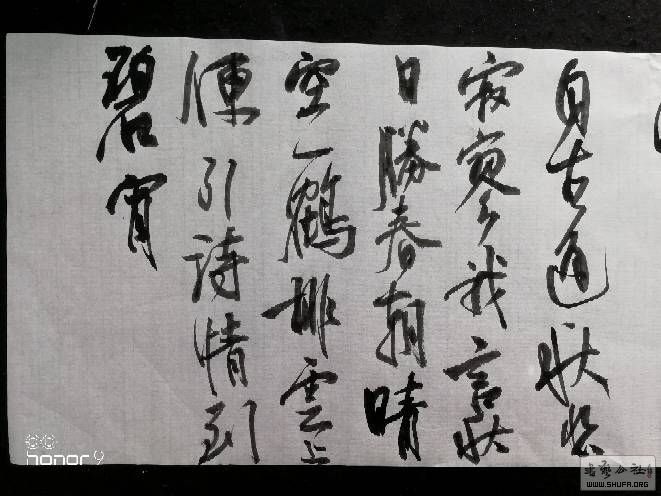 自古逢秋悲
寂寥我言秋
日勝春朝晴
空一鶴排雲上
便引詩情到
碧宵
honor 9
书艺公社
WWW.SHUFA.ORG